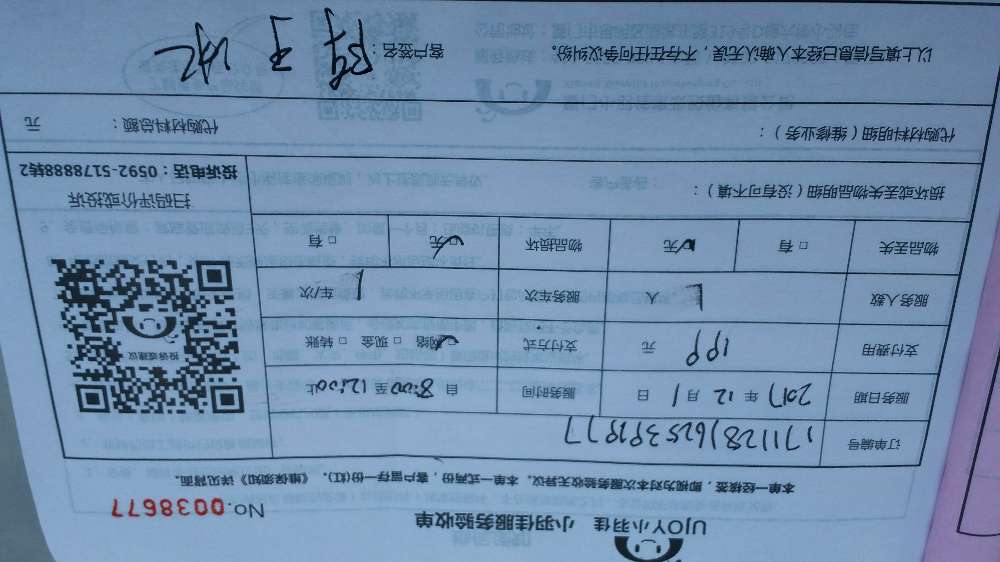 UJOY小羽佳 小羽佳服务验收单
No.0038677
本单一经接签，即视为对本次服务验收无异议。本单一式两份，客户留存一份(红)。《维保须知》详见背面。
订单编号 1711281625391977
服务日期 2017 年 12 月 1 日 服务时间 自 8:00 至 12:00 止
支付费用 199 元 支付方式 ☑ 网络 □ 现金 □ 转账
服务人数 1 人 服务车次 1 车/次
物品丢失 □ 有 ☑ 无 物品损坏 ☑ 无 □ 有
投诉或建议
扫码评价或投诉
投诉电话：0592-5178888转2
损坏或丢失物品明细（没有可不填）：
代购材料明细（维修业务）：
代购材料总额： 元
以上填写信息已经本人确认无误，不存在任何争议纠纷。
客户签名：